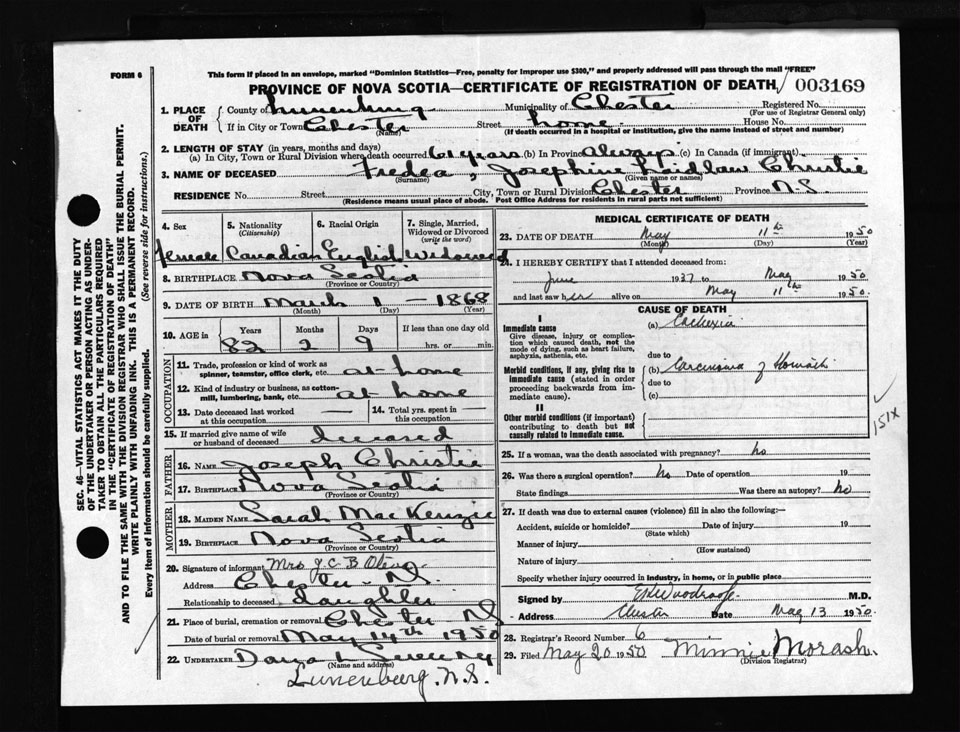 FORM 6
This form if placed in an envelope, marked "Dominion Statistics—Free, penalty for improper use $300," and properly addressed will pass through the mail "FREE"
PROVINCE OF NOVA SCOTIA—CERTIFICATE OF REGISTRATION OF DEATH 003169
1. PLACE OF DEATH County of Lunenburg Municipality of Chester Registered No.
(For use of Registrar General only)
If in City or Town Chester Street home House No.
(Name) (If death occurred in a hospital or institution, give the name instead of street and number)
2. LENGTH OF STAY (in years, months and days)
(a) In City, Town or Rural Division where death occurred 61 years (b) In Province always (c) In Canada (if immigrant)
3. NAME OF DECEASED Fredea, Josephine Laidlaw Christie
(Surname) (Given name or names)
RESIDENCE No. Street City, Town or Rural Division Chester Province N.S.
(Residence means usual place of abode. Post Office Address for residents in rural parts not sufficient)
SEC. 46—VITAL STATISTICS ACT MAKES IT THE DUTY
OF THE UNDERTAKER OR PERSON ACTING AS UNDER-
TAKER TO OBTAIN ALL THE PARTICULARS REQUIRED
IN THE "CERTIFICATE OF REGISTRATION OF DEATH"
AND TO FILE THE SAME WITH THE DIVISION REGISTRAR WHO SHALL ISSUE THE BURIAL PERMIT.
WRITE PLAINLY WITH UNFADING INK. THIS IS A PERMANENT RECORD.
Every item of information should be carefully supplied. (See reverse side for instructions.)
4. Sex 5. Nationality (Citizenship) 6. Racial Origin 7. Single, Married, Widowed or Divorced (write the word)
Female Canadian English Widowed
8. BIRTHPLACE Nova Scotia
(Province or Country)
9. DATE OF BIRTH March 1 - 1868
(Month) (Day) (Year)
10. AGE in Years Months Days If less than one day old
82 2 9 hrs. or min.
OCCUPATION
11. Trade, profession or kind of work as
spinner, teamster, office clerk, etc. at home
12. Kind of industry or business, as cotton-
mill, lumbering, bank, etc. at home
13. Date deceased last worked at this occupation 14. Total yrs. spent in this occupation
15. If married give name of wife
or husband of deceased deceased
FATHER
16. NAME Joseph Christie
17. BIRTHPLACE Nova Scotia
(Province or Country)
MOTHER
18. MAIDEN NAME Sarah MacKenzie
19. BIRTHPLACE Nova Scotia
(Province or Country)
20. Signature of informant Mrs J.C.B.
Address Chester N.S.
Relationship to deceased daughter
21. Place of burial, cremation or removal Chester NS
Date of burial or removal May 14th 1950
22. UNDERTAKER
(Name and address)
Lunenburg. N.S.
MEDICAL CERTIFICATE OF DEATH
23. DATE OF DEATH May 11th 1950
(Month) (Day) (Year)
24. I HEREBY CERTIFY that I attended deceased from:
June 1937 to May 1950
and last saw her alive on May 11th 1950.
CAUSE OF DEATH
I
Immediate cause
Give disease, injury or complication which caused death, not the mode of dying, such as heart failure, asphyxia, asthenia, etc.
(a) Cachexia
due to
Morbid conditions, if any, giving rise to immediate cause (stated in order proceeding backwards from immediate cause).
(b) Carcinoma of Stomach
due to
(c)
II
Other morbid conditions (if important) contributing to death but not causally related to immediate cause.
151X
25. If a woman, was the death associated with pregnancy? no
26. Was there a surgical operation? No Date of operation 19
State findings Was there an autopsy? No
27. If death was due to external causes (violence) fill in also the following:—
Accident, suicide or homicide? Date of injury 19
(State which)
Manner of injury
(How sustained)
Nature of injury
Specify whether injury occurred in industry, in home, or in public place
Signed by M.D.
Address Chester Date May 13 1950.
28. Registrar's Record Number 6
29. Filed May 20 1950 Minnie Morash.
(Division Registrar)